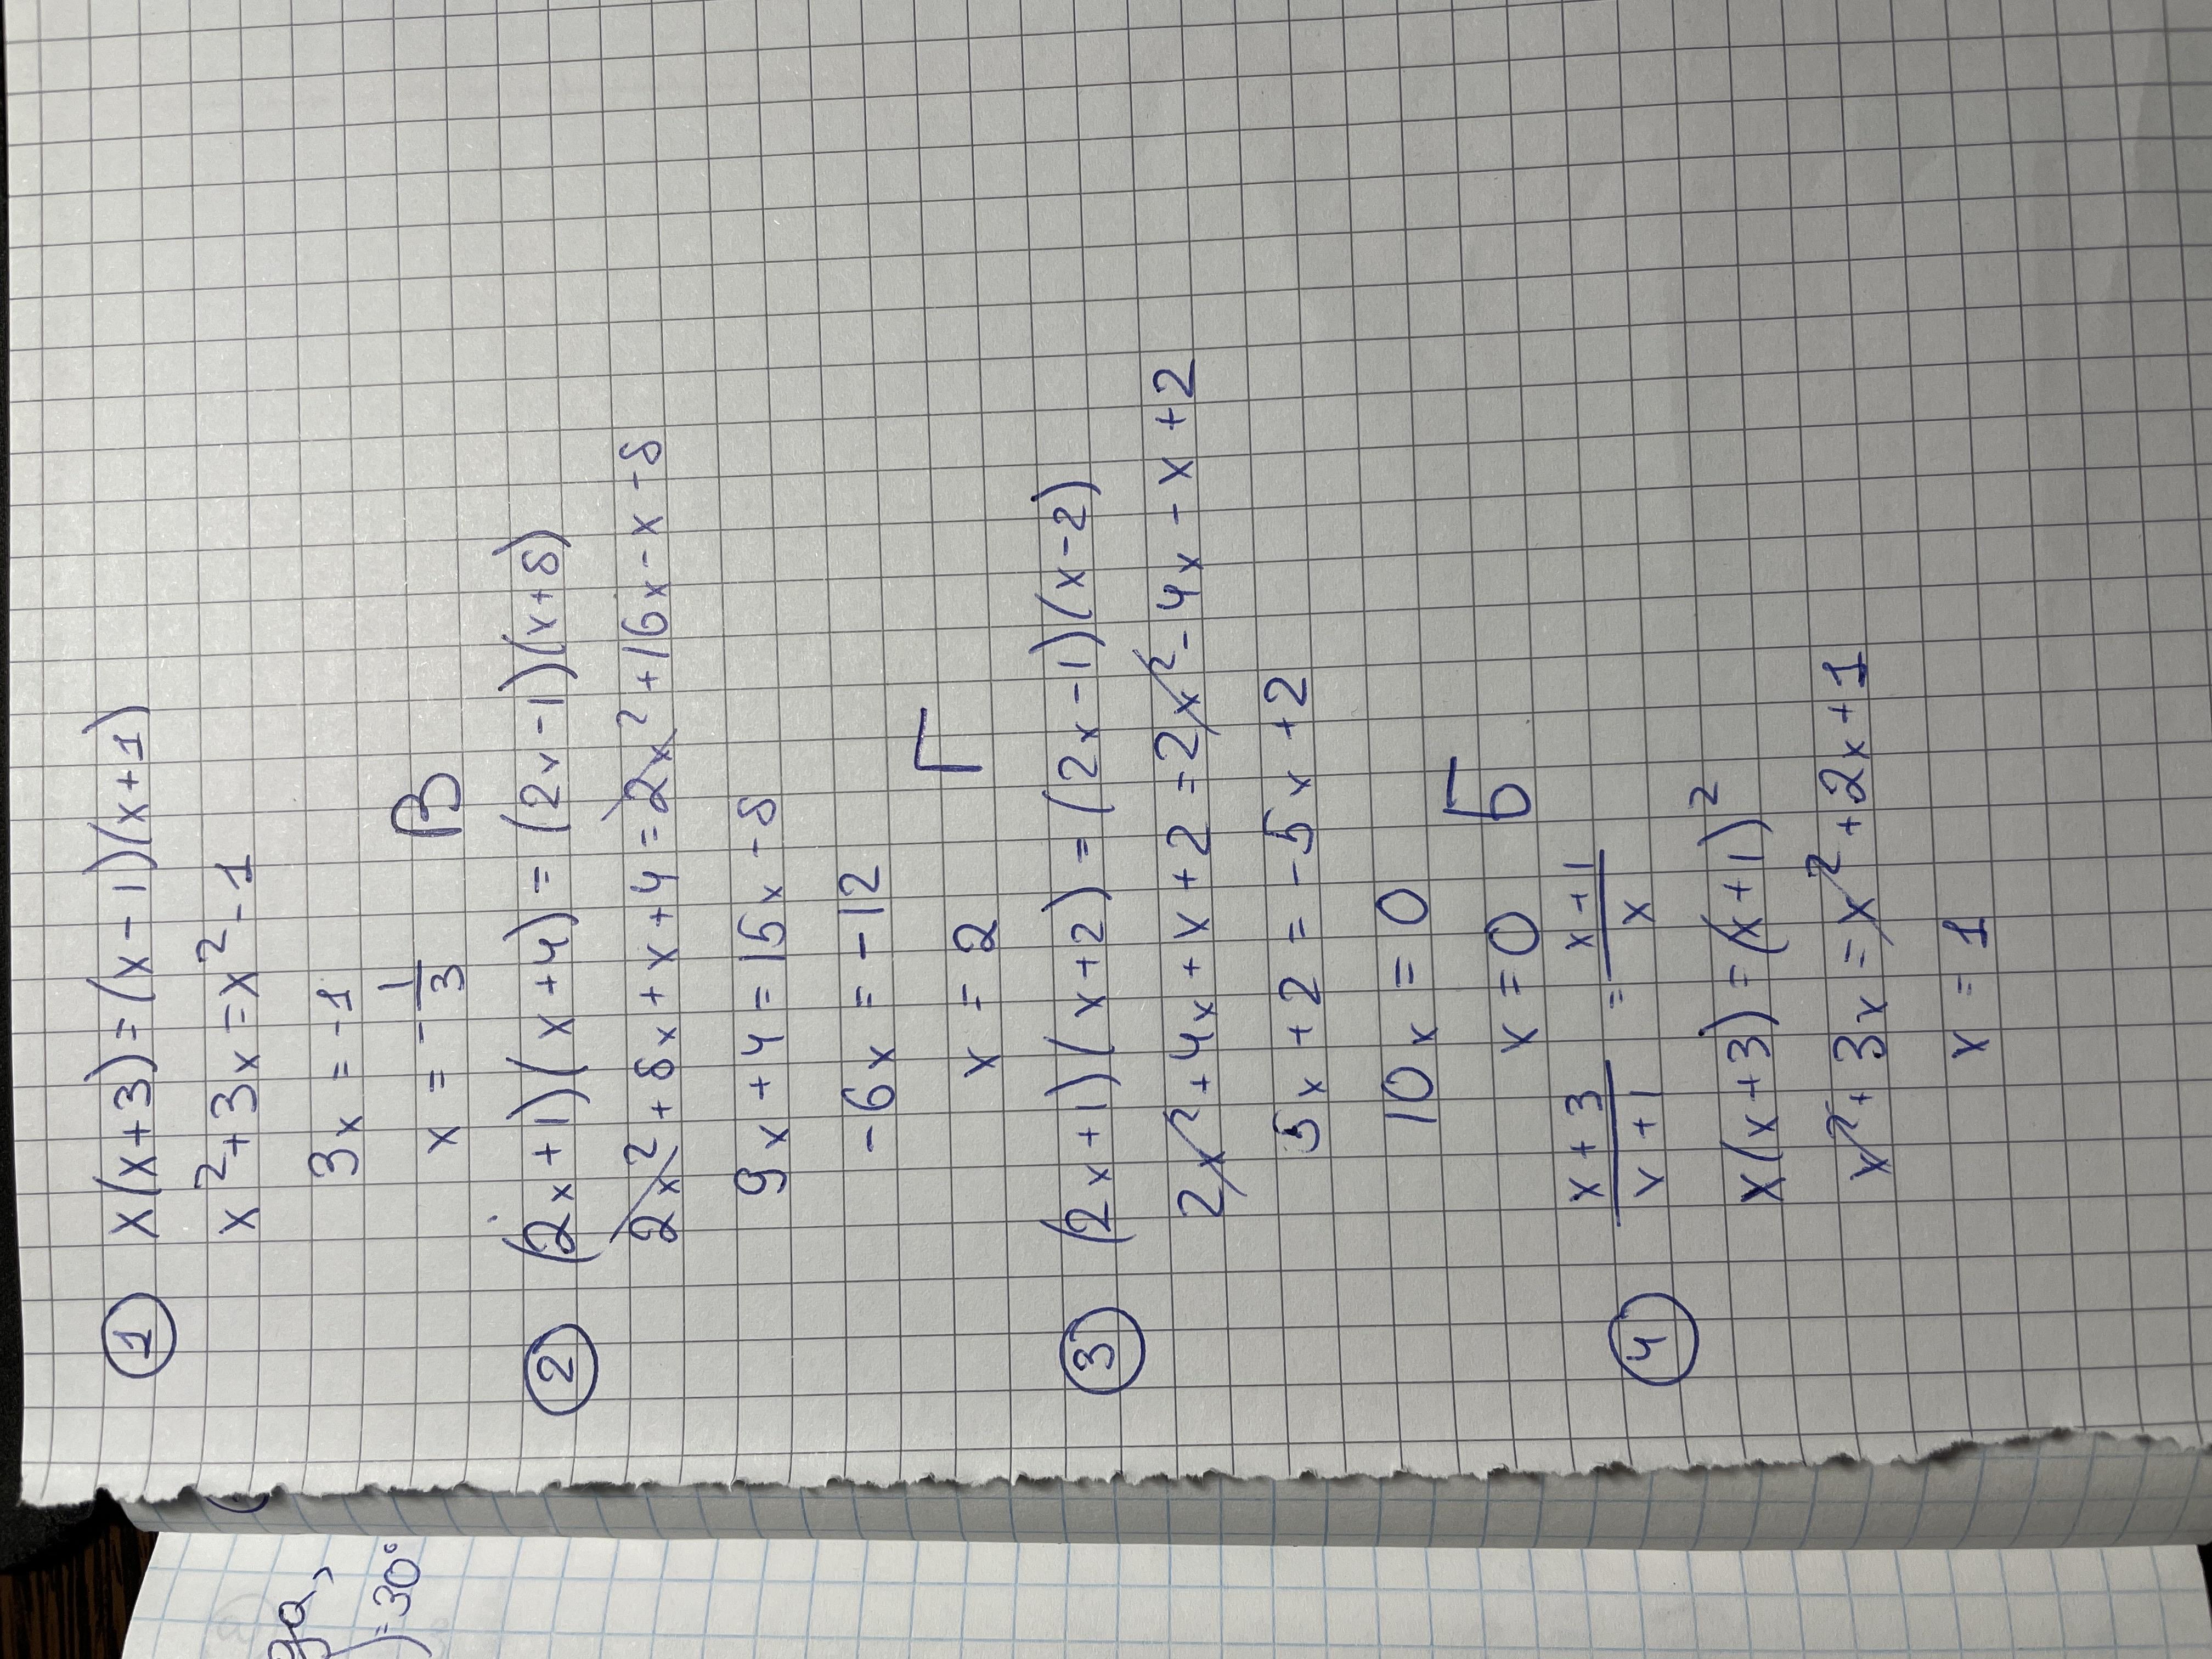 ① x(x+3)=(x-1)(x+1)
x²+3x=x²-1
3x=-1
x=-1/3 В
② (2x+1)(x+4)=(2x-1)(x+8)
2x²+8x+x+4=2x²+16x-x-8
9x+4=15x-8
-6x=-12
x=2 Г
③ (2x+1)(x+2)=(2x-1)(x-2)
2x²+4x+x+2=2x²-4x-x+2
5x+2=-5x+2
10x=0
x=0 Б
④ (x+3)/(x+1)=(x+1)/x
x(x+3)=(x+1)²
x²+3x=x²+2x+1
x=1
=30°